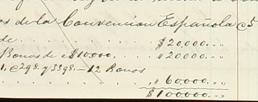 os de la Convencion Española
de . . . . . . . . $20,000...
Bonos de $10,000 . . . . "20000...
1, 298. y 398. — 12 Bonos
. . . . . . . . " 60000...
$100000...